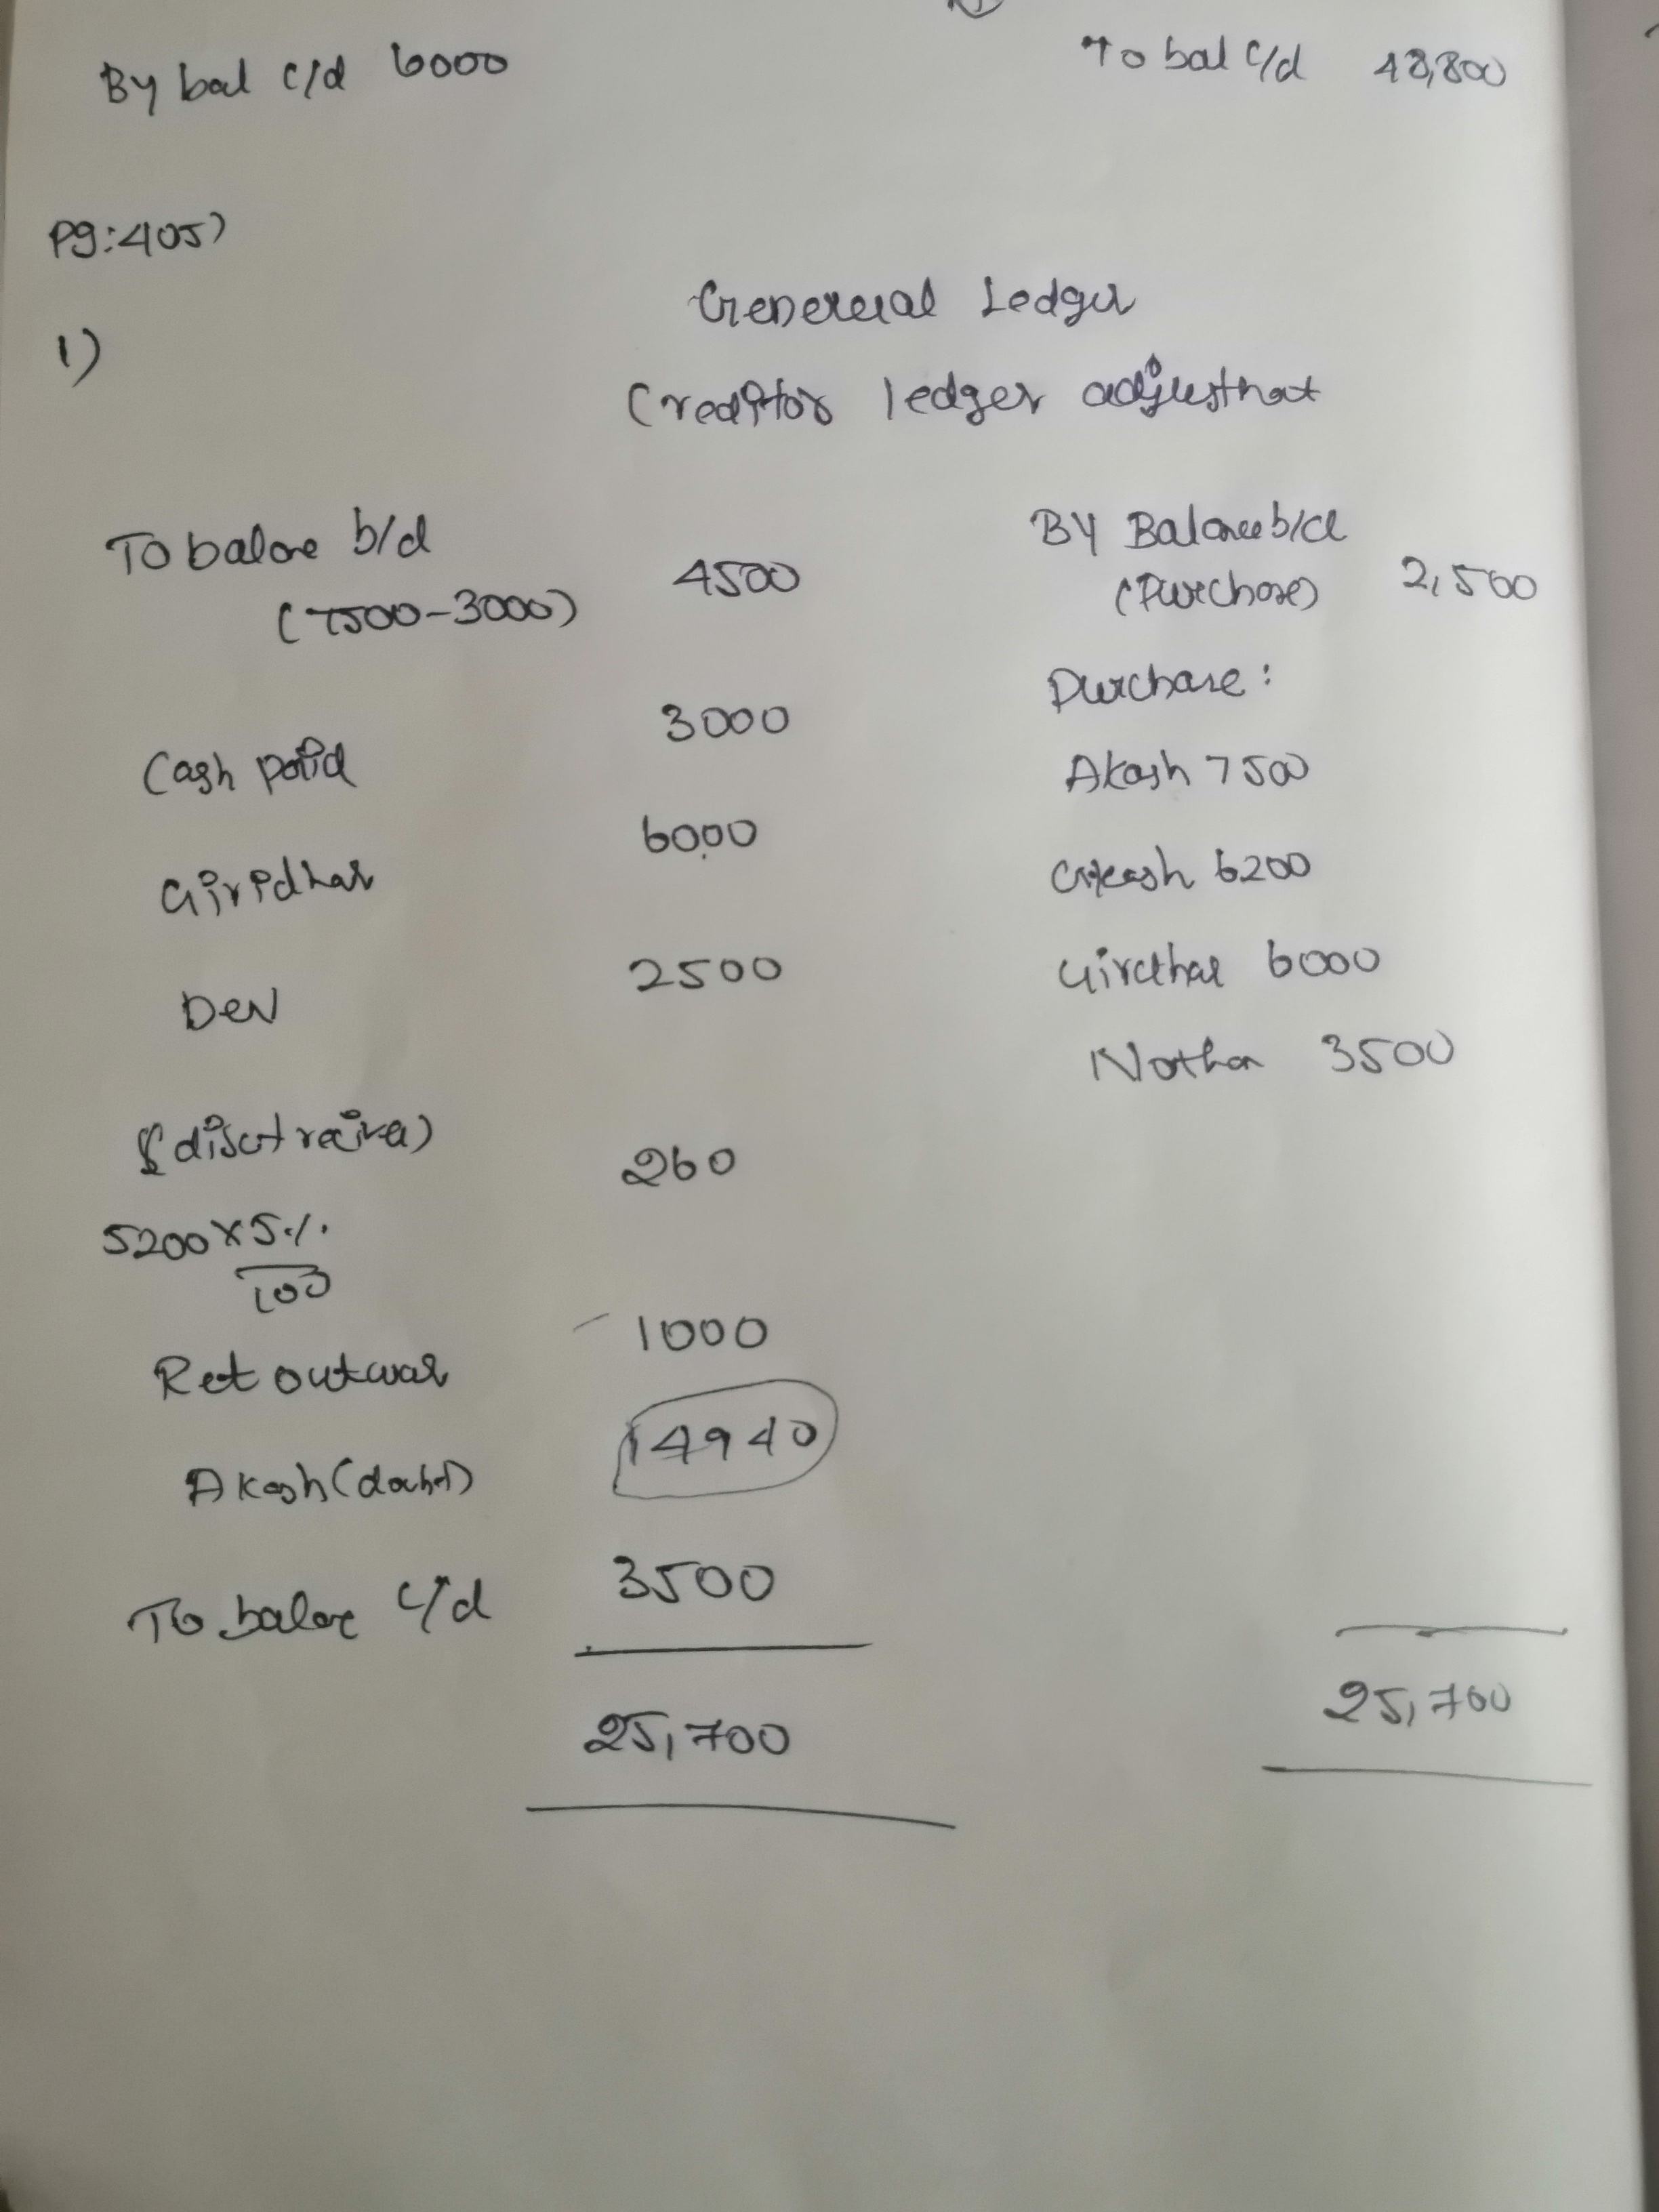 By bal c/d 6000 To bal c/d 48,800
Pg:405)
1)
Genereral Ledger
Creditor ledger adjustnat
To balane b/d 4500 By Balance b/d
(7500-3000) (Purchase) 2,500
Purchase:
Cash paid 3000 Akash 7500
Giridhar 6000 6200
Dev 2500 Girdhar 6000
Nathan 3500
(disct reciva) 260
5200x5%
100
Ret outwar 1000
Akash 14940
To balance c/d 3500
25,700 25,700